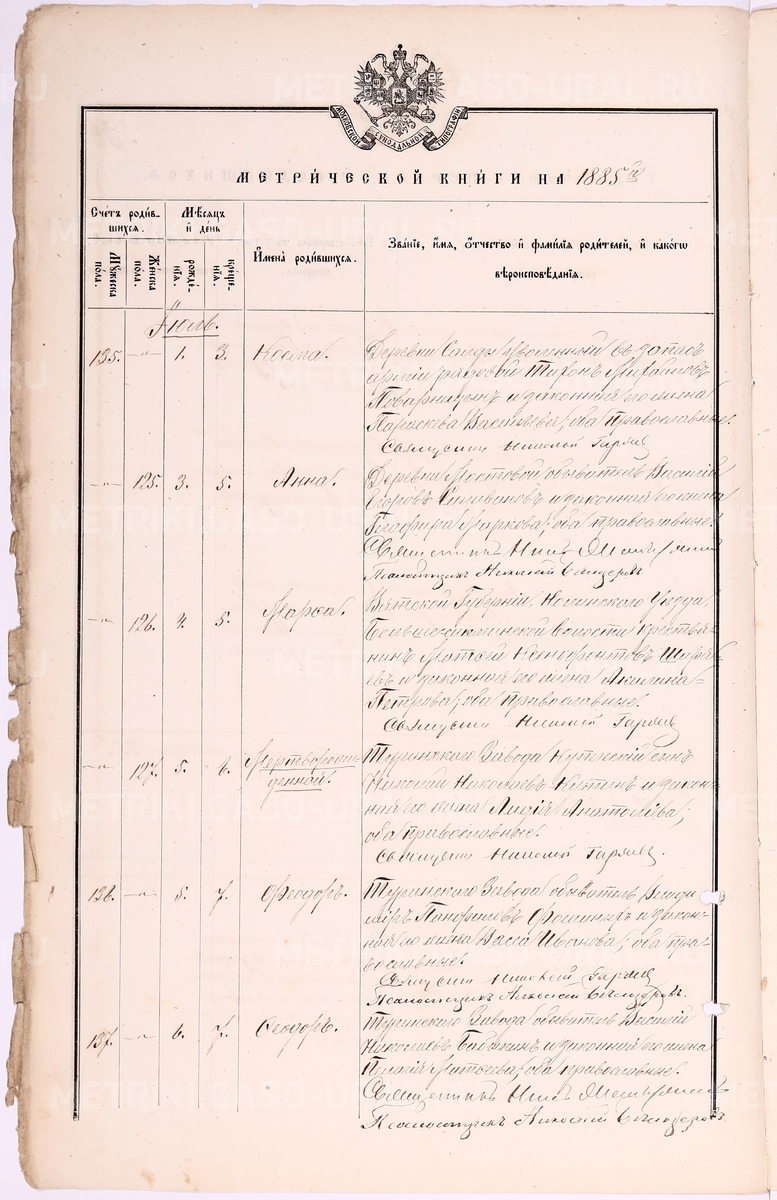 МОСКОВСКОЙ СѴНОДАЛЬНОЙ ТИПОГРАФІИ
МЕТРИ́ЧЕСКОЙ КНИ́ГИ НА 1885й
Сче́тъ роди́в-
шихся.
Мѣ́сяцъ
и҆ де́нь
И҆мена̀ роди́вшихся.
Зва́ніе, и҆́мя, ѻ҆́тчество и҆ фами́лія роди́телей, и҆ како́гѡ
вѣроисповѣ́данія.
Мꙋ́жеска по́ла.
Же́нска по́ла.
рожде́-нія.
креще́-нія.
Іюль.
135. —„— 1. 3. Косма. Деревни Салды уволенный въ запасъ
арміи рядовой Тихонъ Михайловъ
Поварницынъ и законная его жена
Параскева Васильева; оба православные.
Священникъ Николай Гаряевъ
—„— 125. 3. 5. Анна. Деревни Мостовой обыватель Василій
и законная его жена
Глафира Маркова; оба православные.
Священникъ
Псаломщикъ Алексій
—„— 126. 4. 5. Марѳа. Вятской Губерніи, Нолинскаго Уѣзда,
волости крестья-
нинъ Матвѣй Ксенофонтовъ Ширя-
евъ и законная его жена Акилина
Петрова; оба православные.
Священникъ Николай Гаряевъ
—„— 127. 5. 6. Мертворож-
денный. Туринскаго Завода Купеческій сынъ
Николай Николаевъ и закон-
ная его жена Лидія Анатоліева;
оба православные.
Священникъ Николай Гаряевъ.
136. —„— 5. 7. Ѳеодоръ. Туринскаго Завода обыватель Влади-
міръ Панфиловъ и закон-
ная его жена Васса Иванова; оба пра-
вославные.
Священникъ Николай Гаряевъ
Псаломщикъ Алексій
137. —„— 6. 7. Ѳеодоръ. Туринскаго Завода обыватель Василій
Николаевъ Бабкинъ и законная его жена
Матвѣева; оба православные.
Священникъ
Псаломщикъ Алексій